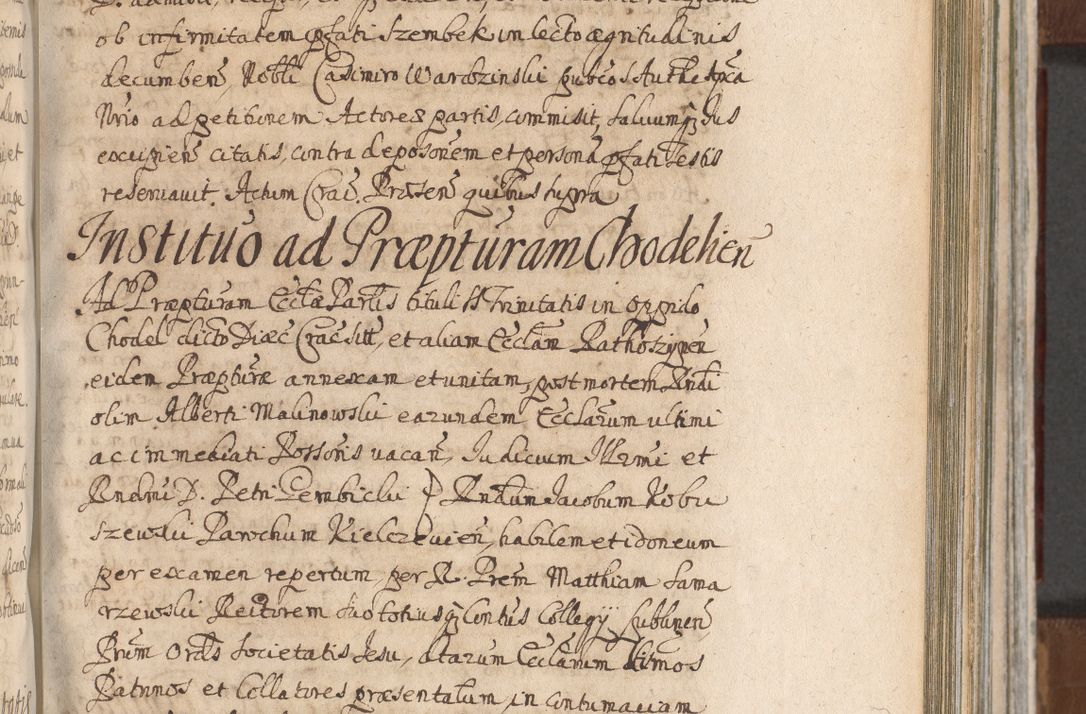 ob infirmitatem pfati Szembek in lecto ægritudinis
decumben, Nobli Casimiro Wardzinski pubco S. Autthe Apca
Nrio ad petitionem Actorea partis, commisit, saluumq Jus
excipien citatis, contra deposonem et persona pfati testis
reseruauit. Actum Crac. Præsen quibus supra
Institutio ad Præpturam Chodelien
Ad Præpturam Ecclæ Parlis tituli SS Trinitatis in oppido
Chodel dicto Diæc Crac sitt, et aliam Ecclam Rathoszynen
eidem Præpturæ annexam et unitam, post mortem Rndi
olim Alberti Malinowski earundem Ecclarum ultimi
ac immediati Possoris uacan, Judicium Illrmi et
Rndmi D. Petri Gembicki Rndum Jacobum Kobu
szewski Parochum Kielczeuien, habilem et idoneum
per examen repertum, per R. Prem Matthiam Sama
rzewski Rectorem suo totiusq Contus Collegij Lublinen
Prum Ordis Societatis Jesu, dtarum Ecclarum
Patronos et Collatores præsentatum, in contumaciam